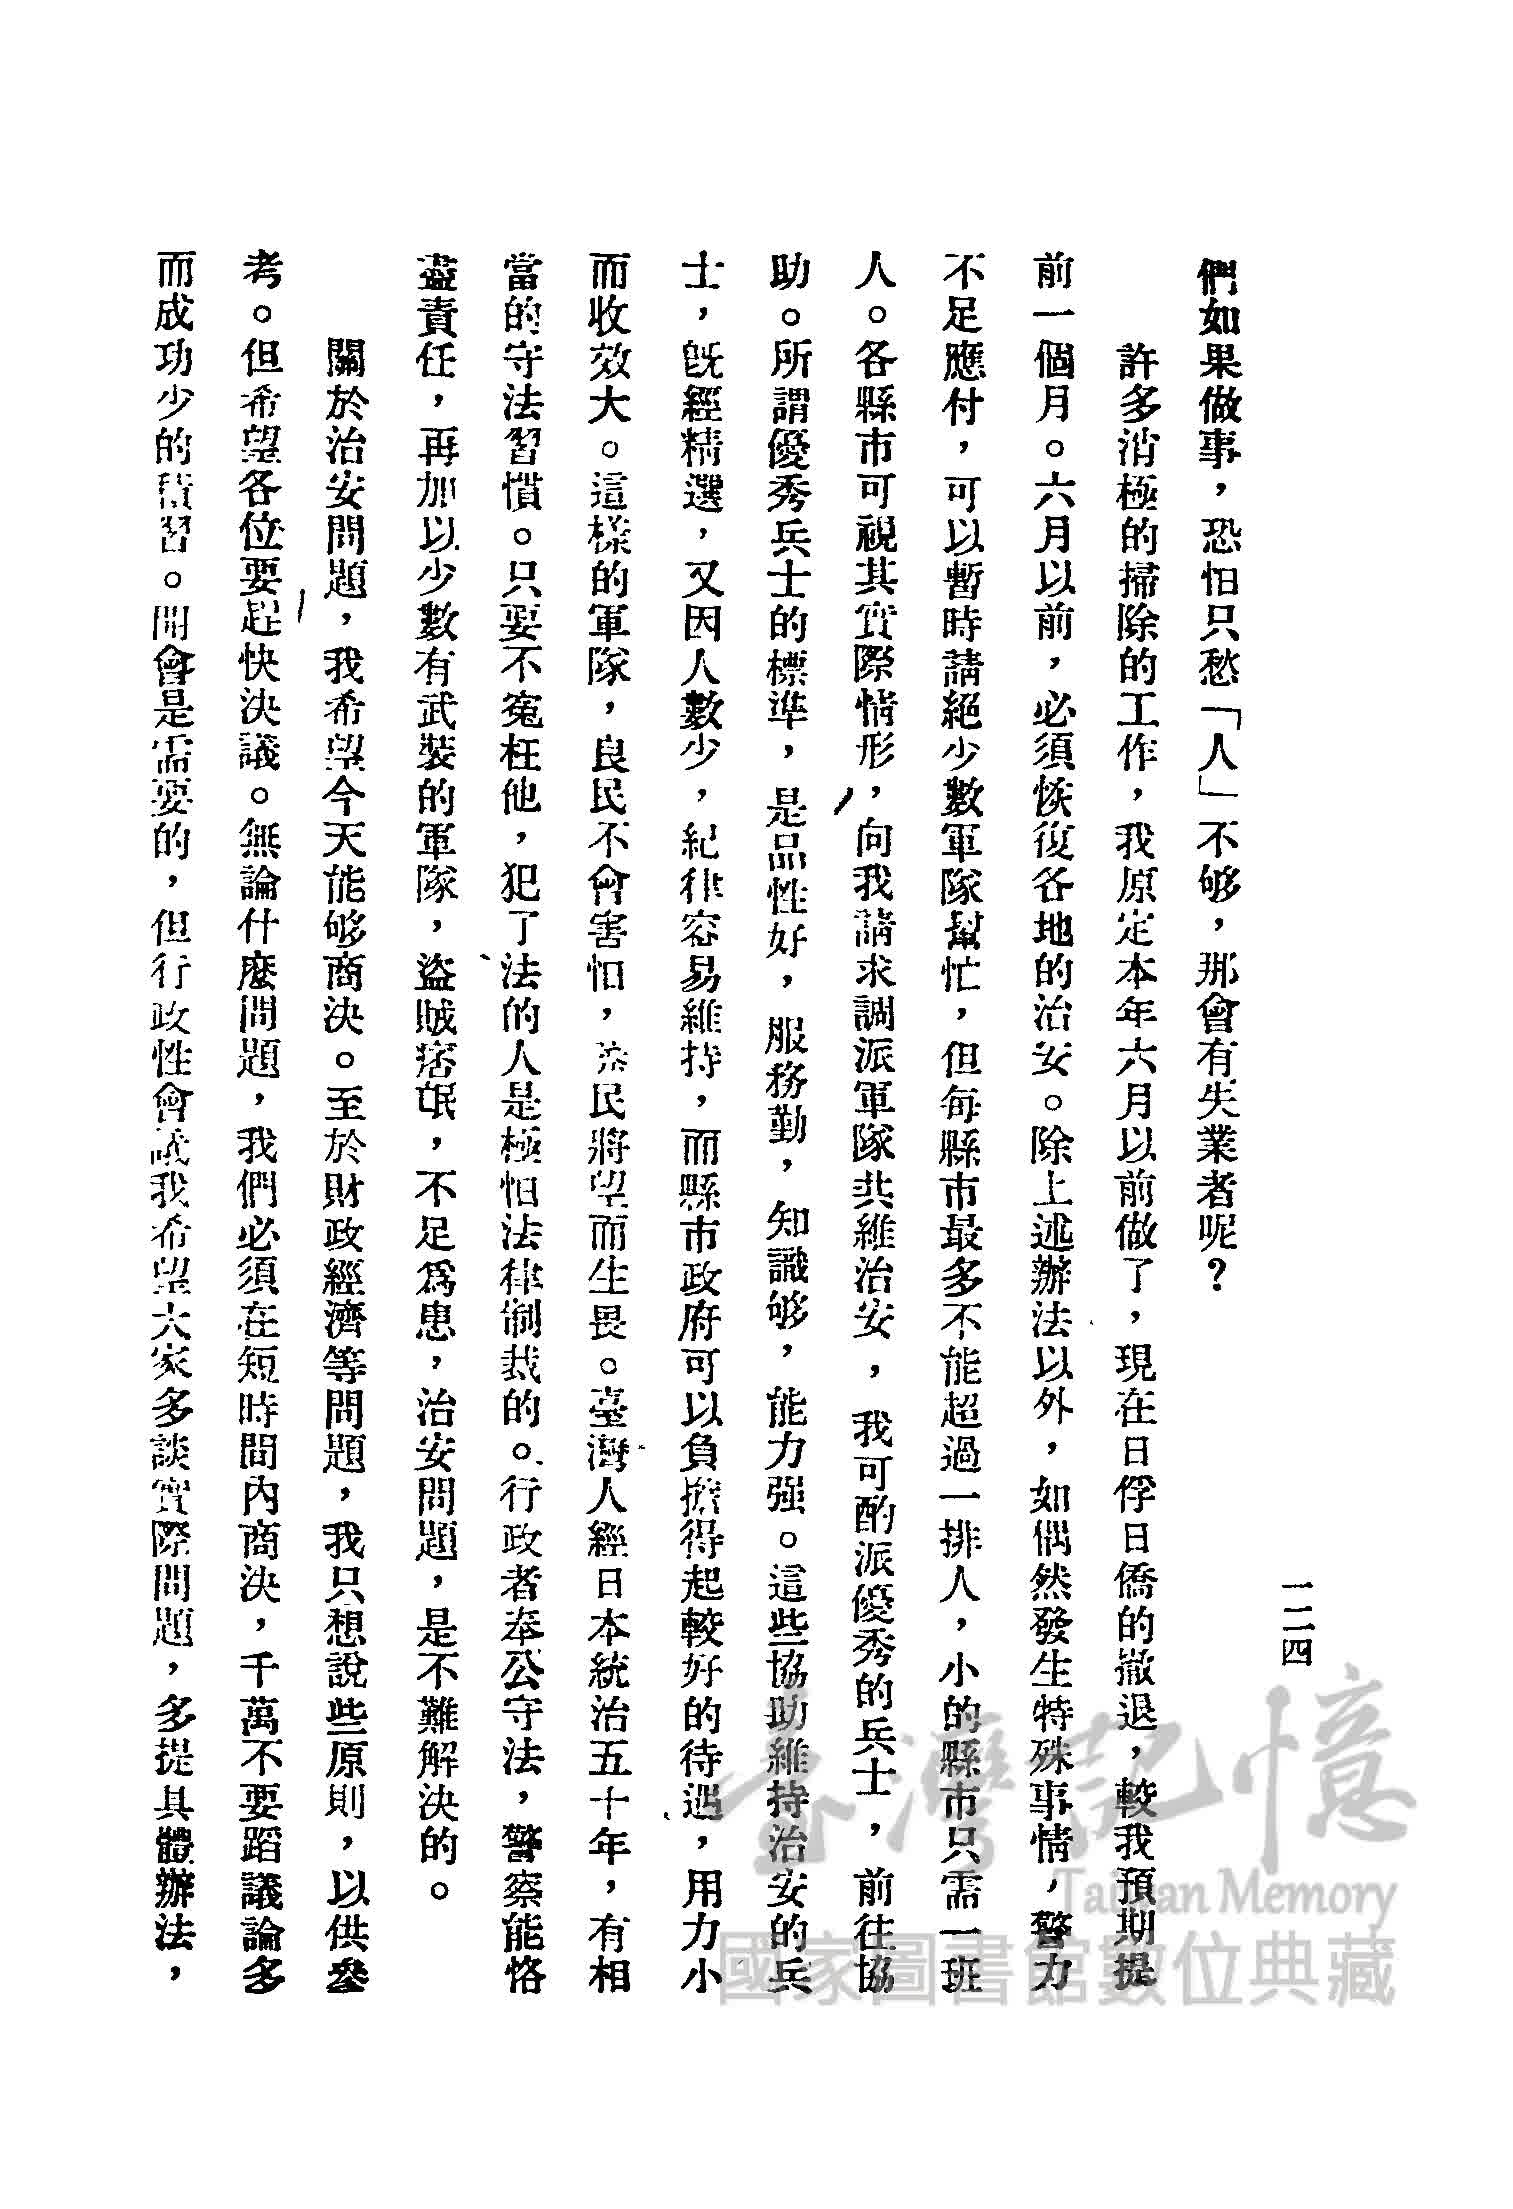 一二四
們如果做事，恐怕只愁「人」不够，那會有失業者呢？
許多消極的掃除的工作，我原定本年六月以前做了，現在日俘日僑的撤退，較我預期提
前一個月。六月以前，必須恢復各地的治安。除上述辦法以外，如偶然發生特殊事情，警力
不足應付，可以暫時請絕少數軍隊幫忙，但每縣市最多不能超過一排人，小的縣市只需一班
人。各縣市可視其實際情形，向我請求調派軍隊共維治安，我可酌派優秀的兵士，前往協
助。所謂優秀兵士的標準，是品性好，服務勤，知識够，能力强。這些協助維持治安的兵
士，旣經精選，又因人數少，紀律容易維持，而縣市政府可以負擔得起較好的待遇，用力小
而收效大。這樣的軍隊，良民不會害怕，莠民將望而生畏。臺灣人經日本統治五十年，有相
當的守法習慣。只要不寃枉他，犯了法的人是極怕法律制裁的。行政者奉公守法，警察能恪
盡責任，再加以少數有武裝的軍隊，盜賊痞氓，不足爲患，治安問題，是不難解決的。
關於治安問題，我希望今天能够商決。至於財政經濟等問題，我只想說些原則，以供參
考。但希望各位要趕快決議。無論什麽問題，我們必須在短時間內商決，千萬不要蹈議論多
而成功少的積習。開會是需要的，但行政性會議我希望大家多談實際問題，多提具體辦法，
臺灣記憶
Taiwan Memory
國家圖書館數位典藏